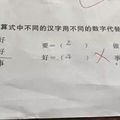 算式中不同的汉字用不同的数字代替
好
好 要=( 2 ) 做
事 好=( 4 ) 事